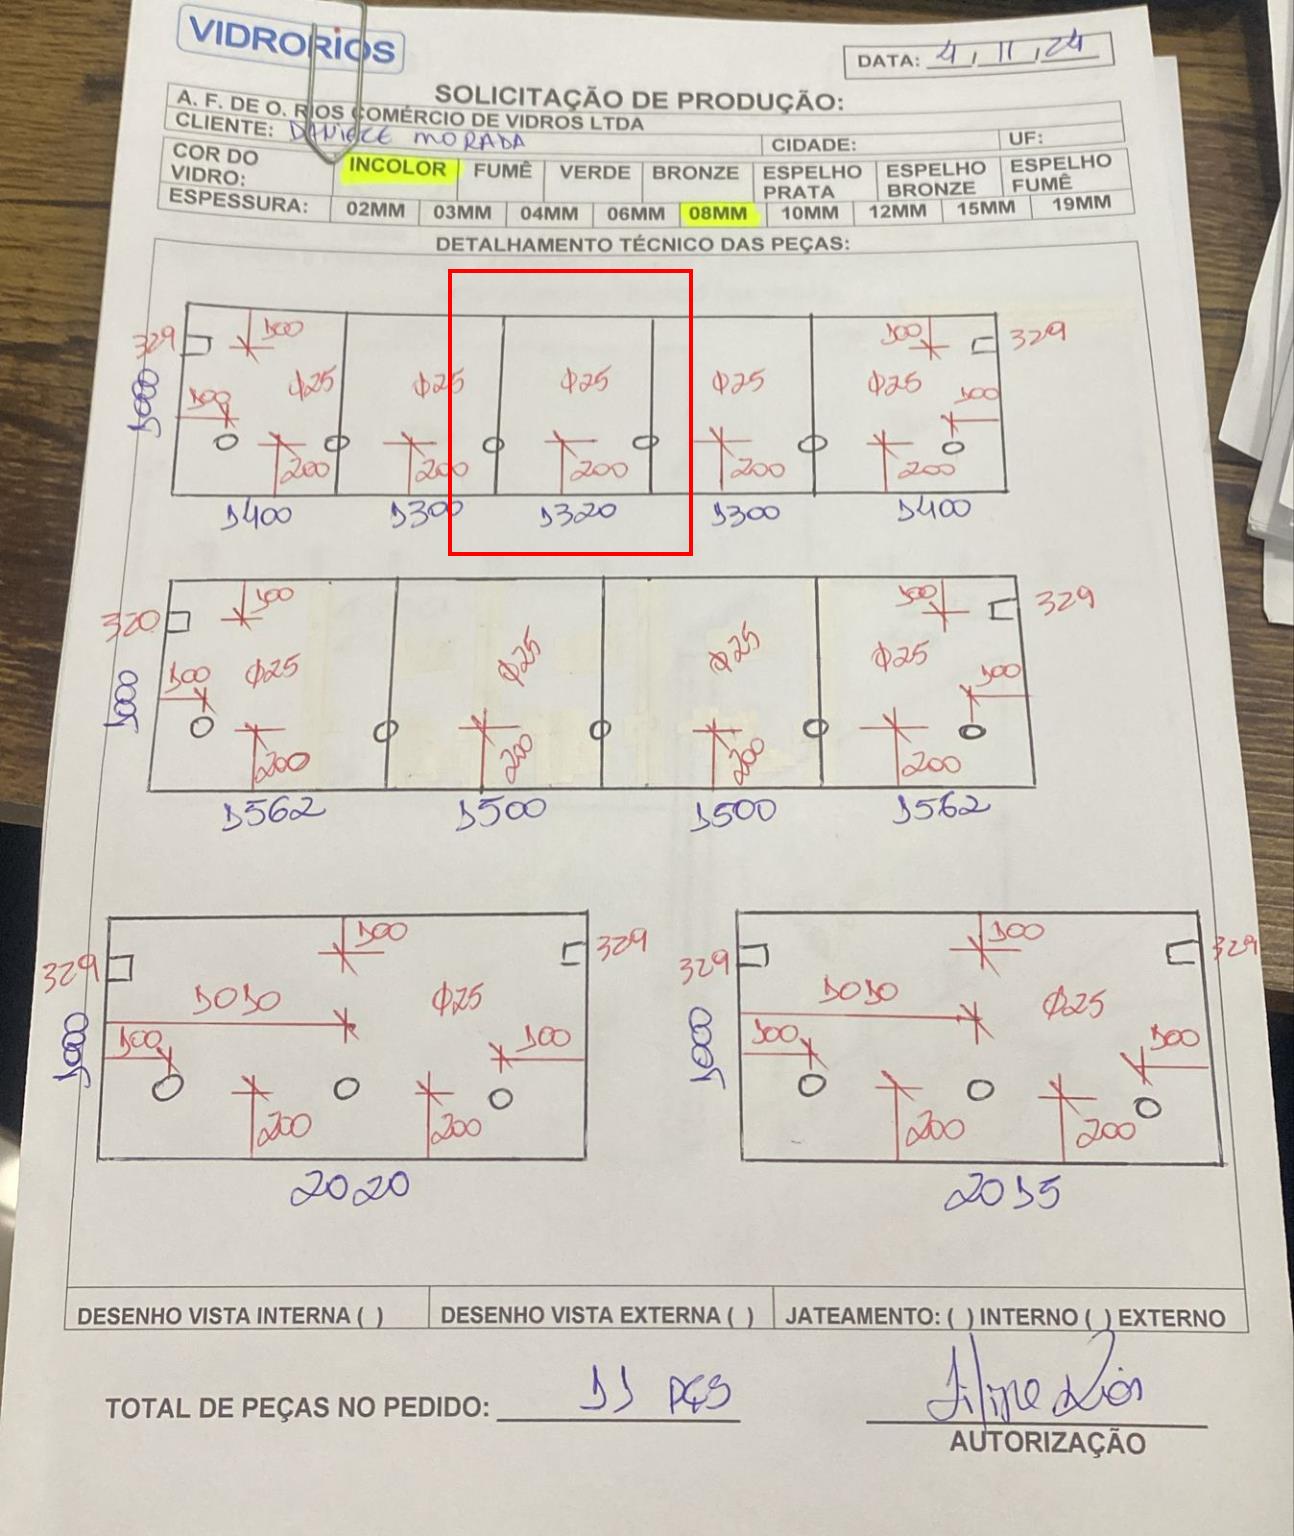 VIDRORIOS
DATA: 4 / 11 / 24
SOLICITAÇÃO DE PRODUÇÃO:
A. F. DE O. RIOS COMÉRCIO DE VIDROS LTDA
CLIENTE: MORADA CIDADE: UF:
COR DO VIDRO: INCOLOR FUMÊ VERDE BRONZE ESPELHO PRATA ESPELHO BRONZE ESPELHO FUMÊ
ESPESSURA: 02MM 03MM 04MM 06MM 08MM 10MM 12MM 15MM 19MM
DETALHAMENTO TÉCNICO DAS PEÇAS:
329 100 100 329
1000 100 Φ25 Φ25 Φ25 Φ25 Φ25 100
200 200 200 200 200
1400 1300 1320 1300 1400
320 100 100 329
1000 100 Φ25 Φ25 Φ25 Φ25 100
200 200 200 200
1562 1500 1500 1562
329 100 329 329 100 329
1010 Φ25 1010 Φ25
1000 100 100 1000 100 100
200 200 200 200
2020 2015
DESENHO VISTA INTERNA ( ) DESENHO VISTA EXTERNA ( ) JATEAMENTO: ( ) INTERNO ( ) EXTERNO
TOTAL DE PEÇAS NO PEDIDO: 11 PÇS
Filipe Rios
AUTORIZAÇÃO